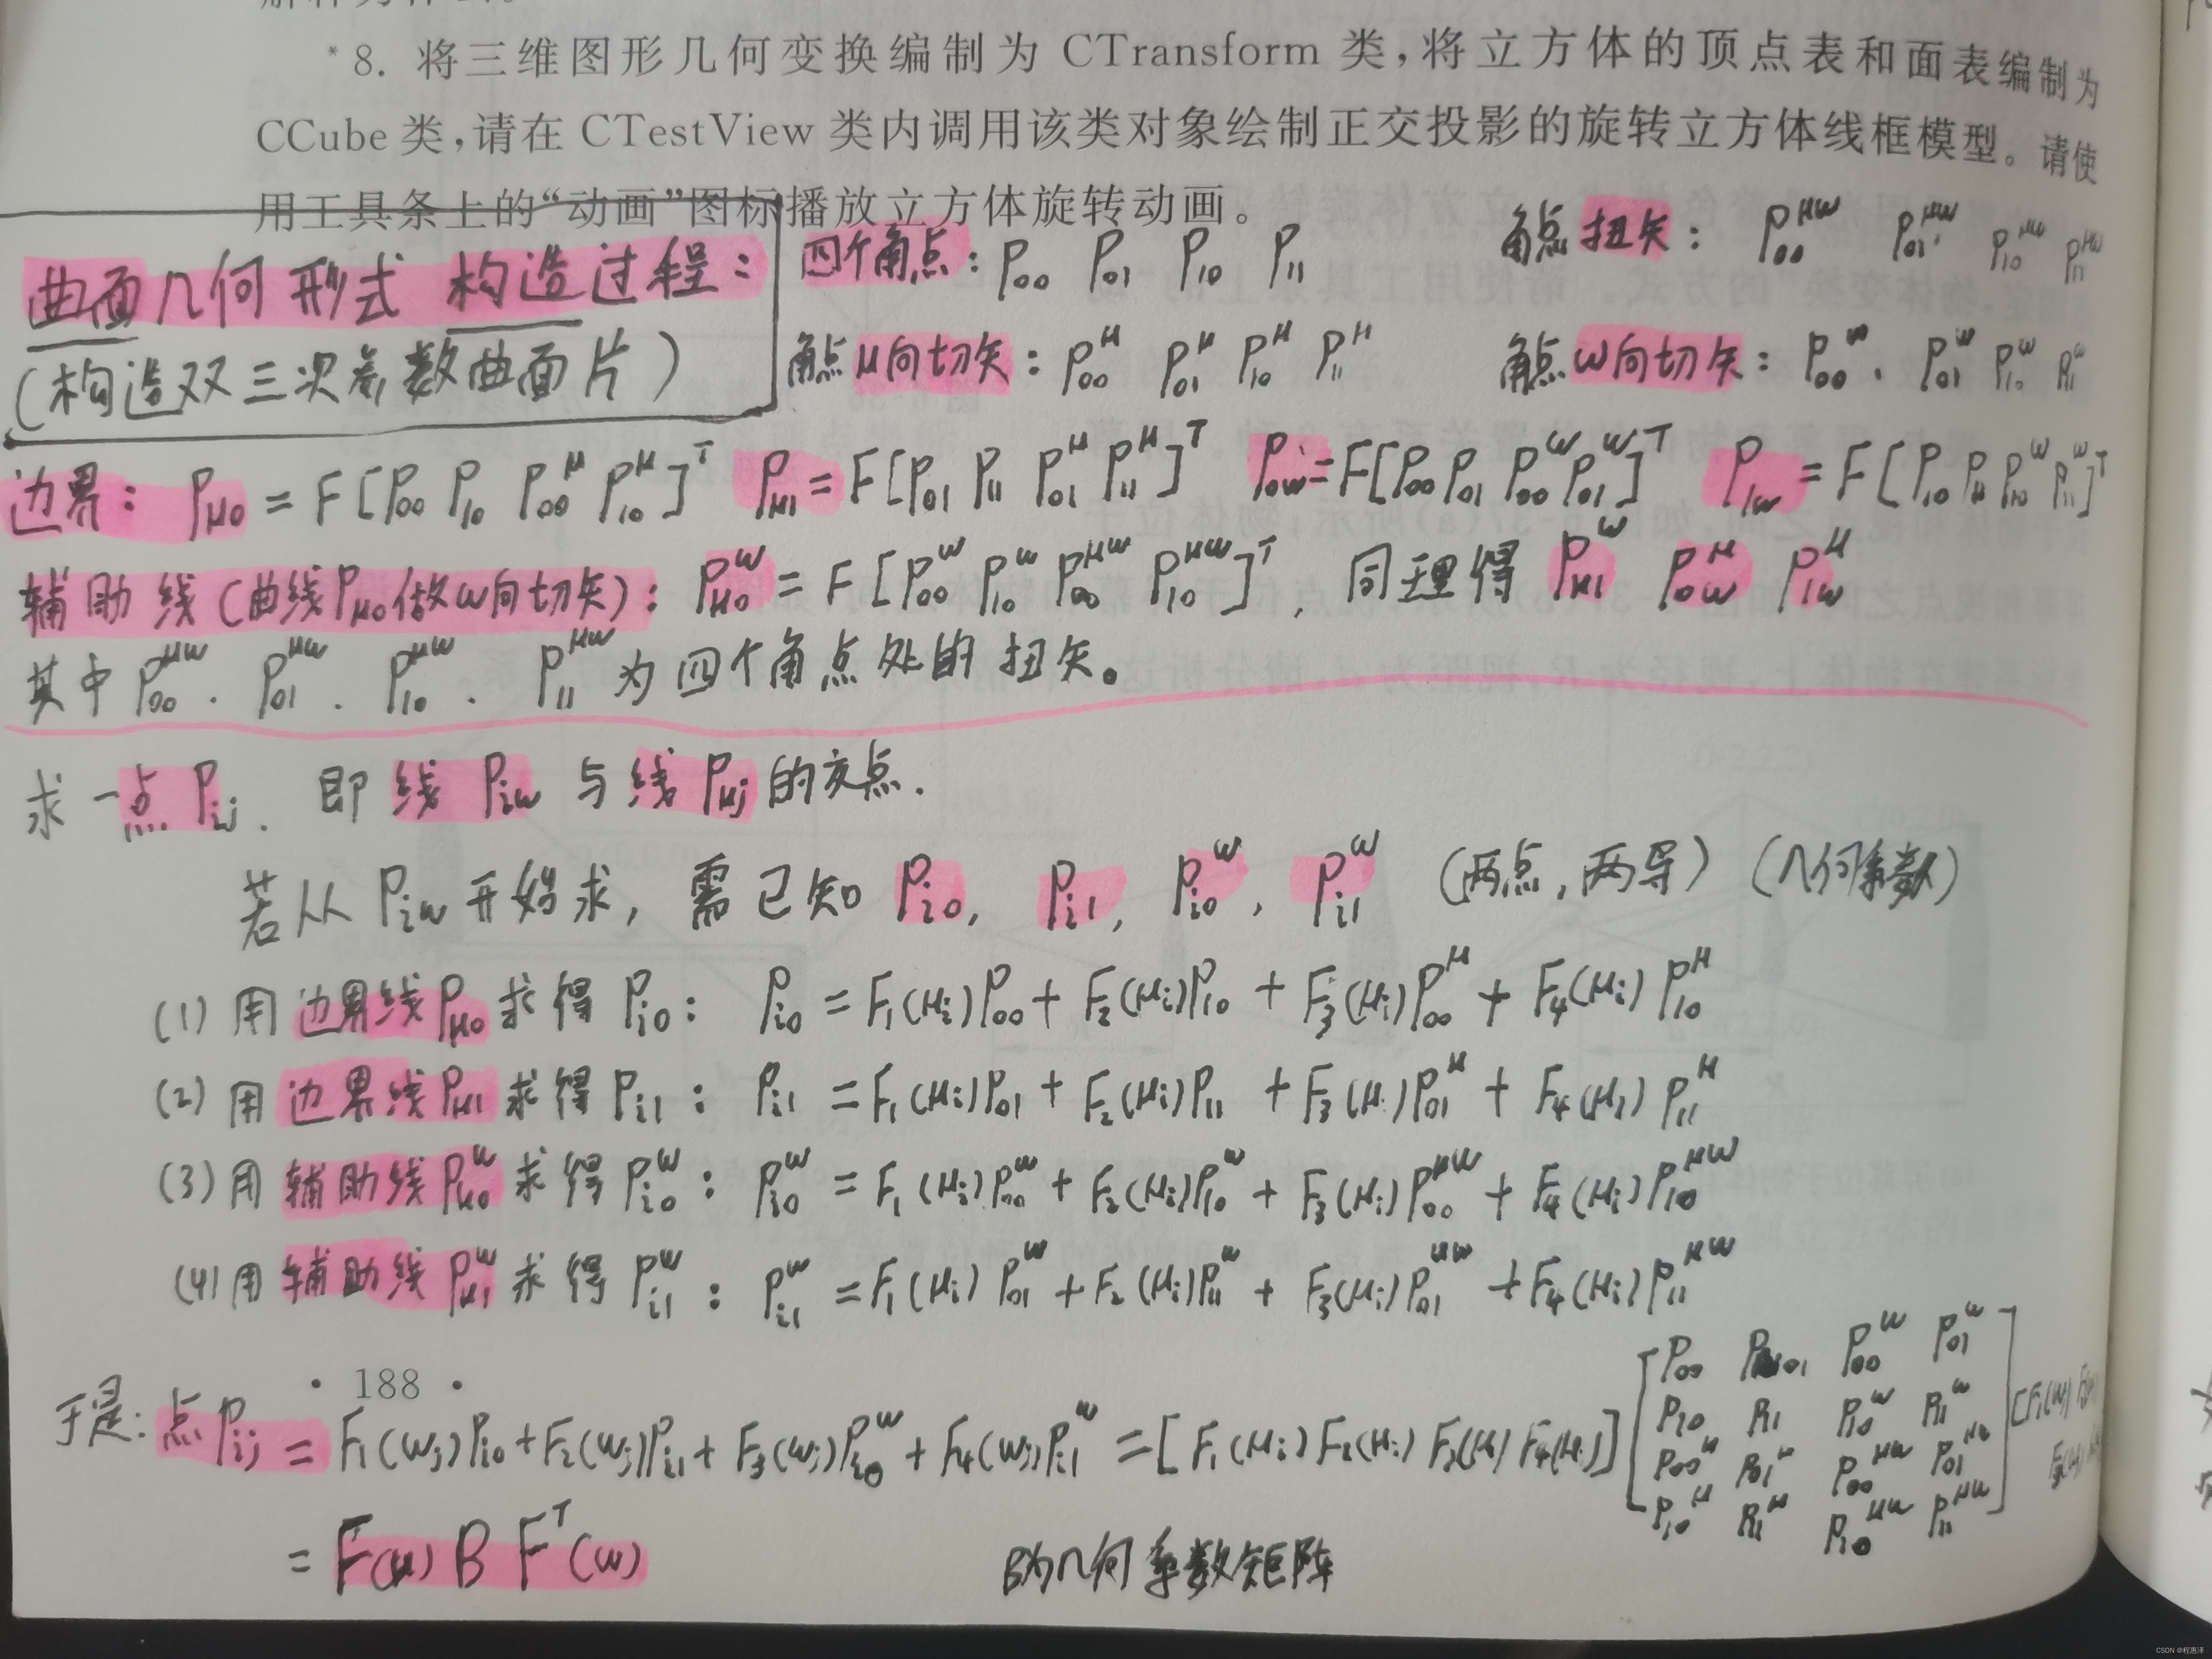 *8. 将三维图形几何变换编制为 CTransform 类,将立方体的顶点表和面表编制为
CCube 类,请在 CTestView 类内调用该类对象绘制正交投影的旋转立方体线框模型。请使
用工具条上的“动画”图标播放立方体旋转动画。
曲面几何形式 构造过程:
(构造双三次参数曲面片)
四个角点: P₀₀ P₀₁ P₁₀ P₁₁
角点扭矢: P₀₀^μw P₀₁^μw P₁₀^μw P₁₁^μw
角点μ向切矢: P₀₀^μ P₀₁^μ P₁₀^μ P₁₁^μ
角点w向切矢: P₀₀^w. P₀₁^w P₁₀^w P₁₁^w
边界: Pμ₀ = F[P₀₀ P₁₀ P₀₀^μ P₁₀^μ]^T Pμ₁ = F[P₀₁ P₁₁ P₀₁^μ P₁₁^μ]^T P₀w = F[P₀₀ P₀₁ P₀₀^w P₀₁^w]^T P₁w = F[P₁₀ P₁₁ P₁₀^w P₁₁^w]^T
辅助线(曲线Pμ₀做w向切矢): Pμ₀^w = F[P₀₀^w P₁₀^w P₀₀^μw P₁₀^μw]^T, 同理得 Pμ₁^w P₀w^μ P₁w^μ
其中 P₀₀^μw. P₀₁^μw. P₁₀^μw. P₁₁^μw 为四个角点处的扭矢。
求一点 Pij. 即 线 Piw 与线 Pμj 的交点.
若从 Piw 开始求, 需已知 Pi₀, Pi₁, Pi₀^w, Pi₁^w (两点,两导) (几何系数)
(1) 用边界线Pμ₀求得 Pi₀: Pi₀ = F₁(μi)P₀₀ + F₂(μi)P₁₀ + F₃(μi)P₀₀^μ + F₄(μi)P₁₀^μ
(2) 用边界线Pμ₁求得 Pi₁: Pi₁ = F₁(μi)P₀₁ + F₂(μi)P₁₁ + F₃(μi)P₀₁^μ + F₄(μi)P₁₁^μ
(3) 用辅助线Pμ₀^w求得 Pi₀^w: Pi₀^w = F₁(μi)P₀₀^w + F₂(μi)P₁₀^w + F₃(μi)P₀₀^μw + F₄(μi)P₁₀^μw
(4) 用辅助线Pμ₁^w求得 Pi₁^w: Pi₁^w = F₁(μi)P₀₁^w + F₂(μi)P₁₁^w + F₃(μi)P₀₁^μw + F₄(μi)P₁₁^μw
· 188 ·
于是: 点Pij = F₁(wj)Pi₀ + F₂(wj)Pi₁ + F₃(wj)Pi₀^w + F₄(wj)Pi₁^w = [F₁(μi) F₂(μi) F₃(μi) F₄(μi)]
P₀₀ P₀₁ P₀₀^w P₀₁^w
P₁₀ P₁₁ P₁₀^w P₁₁^w
P₀₀^μ P₀₁^μ P₀₀^μw P₀₁^μw
P₁₀^μ P₁₁^μ P₁₀^μw P₁₁^μw
= F(μ) B F^T(w)
B为几何系数矩阵
CSDN @程惠泽